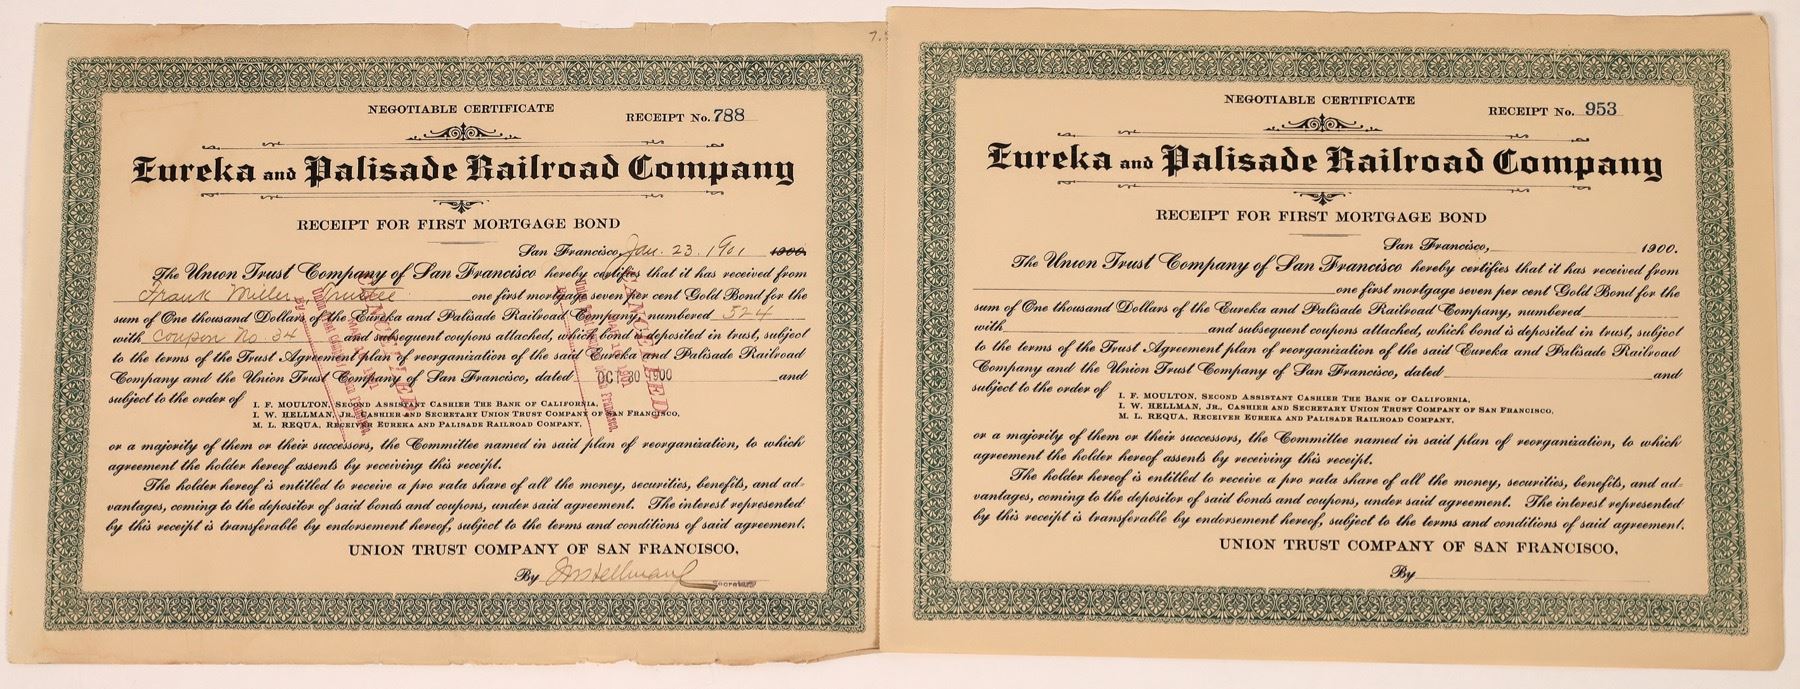 NEGOTIABLE CERTIFICATE
RECEIPT No. 788
Eureka and Palisade Railroad Company
RECEIPT FOR FIRST MORTGAGE BOND
San Francisco, Jan. 23. 1901 1900.
The Union Trust Company of San Francisco hereby certifies that it has received from
Frank Miller Trustee one first mortgage seven per cent Gold Bond for the
sum of One thousand Dollars of the Eureka and Palisade Railroad Company, numbered 524
with Coupon No. 34 and subsequent coupons attached, which bond is deposited in trust, subject
to the terms of the Trust Agreement plan of reorganization of the said Eureka and Palisade Railroad
Company and the Union Trust Company of San Francisco, dated OCT 30 1900 and
subject to the order of
I. F. MOULTON, SECOND ASSISTANT CASHIER THE BANK OF CALIFORNIA,
I. W. HELLMAN, JR., CASHIER AND SECRETARY UNION TRUST COMPANY OF SAN FRANCISCO,
M. L. REQUA, RECEIVER EUREKA AND PALISADE RAILROAD COMPANY,
or a majority of them or their successors, the Committee named in said plan of reorganization, to which
agreement the holder hereof assents by receiving this receipt.
The holder hereof is entitled to receive a pro rata share of all the money, securities, benefits, and ad-
vantages, coming to the depositor of said bonds and coupons, under said agreement. The interest represented
by this receipt is transferable by endorsement hereof, subject to the terms and conditions of said agreement.
UNION TRUST COMPANY OF SAN FRANCISCO,
By IWHellmanJr Secretary
CANCELLED
CANCELLED
NEGOTIABLE CERTIFICATE
RECEIPT No. 953
Eureka and Palisade Railroad Company
RECEIPT FOR FIRST MORTGAGE BOND
San Francisco, 1900.
The Union Trust Company of San Francisco hereby certifies that it has received from
one first mortgage seven per cent Gold Bond for the
sum of One thousand Dollars of the Eureka and Palisade Railroad Company, numbered
with and subsequent coupons attached, which bond is deposited in trust, subject
to the terms of the Trust Agreement plan of reorganization of the said Eureka and Palisade Railroad
Company and the Union Trust Company of San Francisco, dated and
subject to the order of
I. F. MOULTON, SECOND ASSISTANT CASHIER THE BANK OF CALIFORNIA,
I. W. HELLMAN, JR., CASHIER AND SECRETARY UNION TRUST COMPANY OF SAN FRANCISCO,
M. L. REQUA, RECEIVER EUREKA AND PALISADE RAILROAD COMPANY,
or a majority of them or their successors, the Committee named in said plan of reorganization, to which
agreement the holder hereof assents by receiving this receipt.
The holder hereof is entitled to receive a pro rata share of all the money, securities, benefits, and ad-
vantages, coming to the depositor of said bonds and coupons, under said agreement. The interest represented
by this receipt is transferable by endorsement hereof, subject to the terms and conditions of said agreement.
UNION TRUST COMPANY OF SAN FRANCISCO,
By